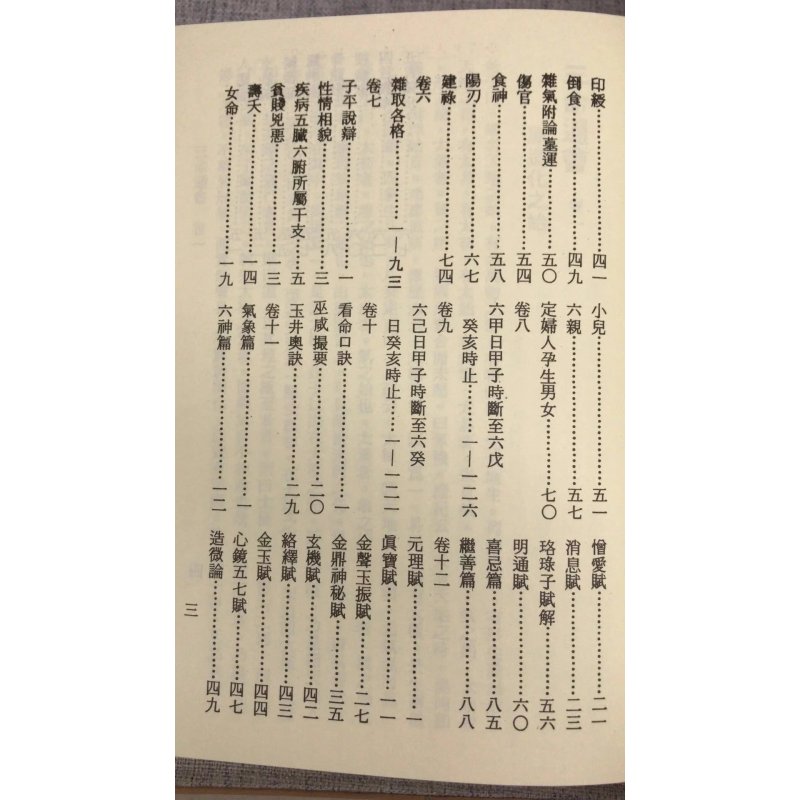 印綬………四一
倒食………四九
雜氣附論墓運………五〇
傷官………五四
食神………五八
陽刃………六七
建祿………七四
卷六
雜取各格………一—九三
卷七
子平說辯………一
性情相貌………三
疾病五臟六腑所屬干支………五
貧賤兇惡………一三
壽夭………一四
女命………一九
小兒………五一
六親………五七
定婦人孕生男女………七〇
卷八
六甲日甲子時斷至六戊
癸亥時止………一—一二六
卷九
六己日甲子時斷至六癸
日癸亥時止………一—一二一
卷十
看命口訣………一
巫咸撮要………二〇
玉井奧訣………二九
卷十一
氣象篇………一
六神篇………一二
憎愛賦………二一
消息賦………二三
珞琭子賦解………五六
明通賦………六〇
喜忌篇………八五
繼善篇………八八
卷十二
元理賦………一
眞寶賦………一一
金聲玉振賦………二七
金鼎神秘賦………三五
玄機賦………四二
絡繹賦………四三
金玉賦………四四
心鏡五七賦………四七
造微論………四九
三